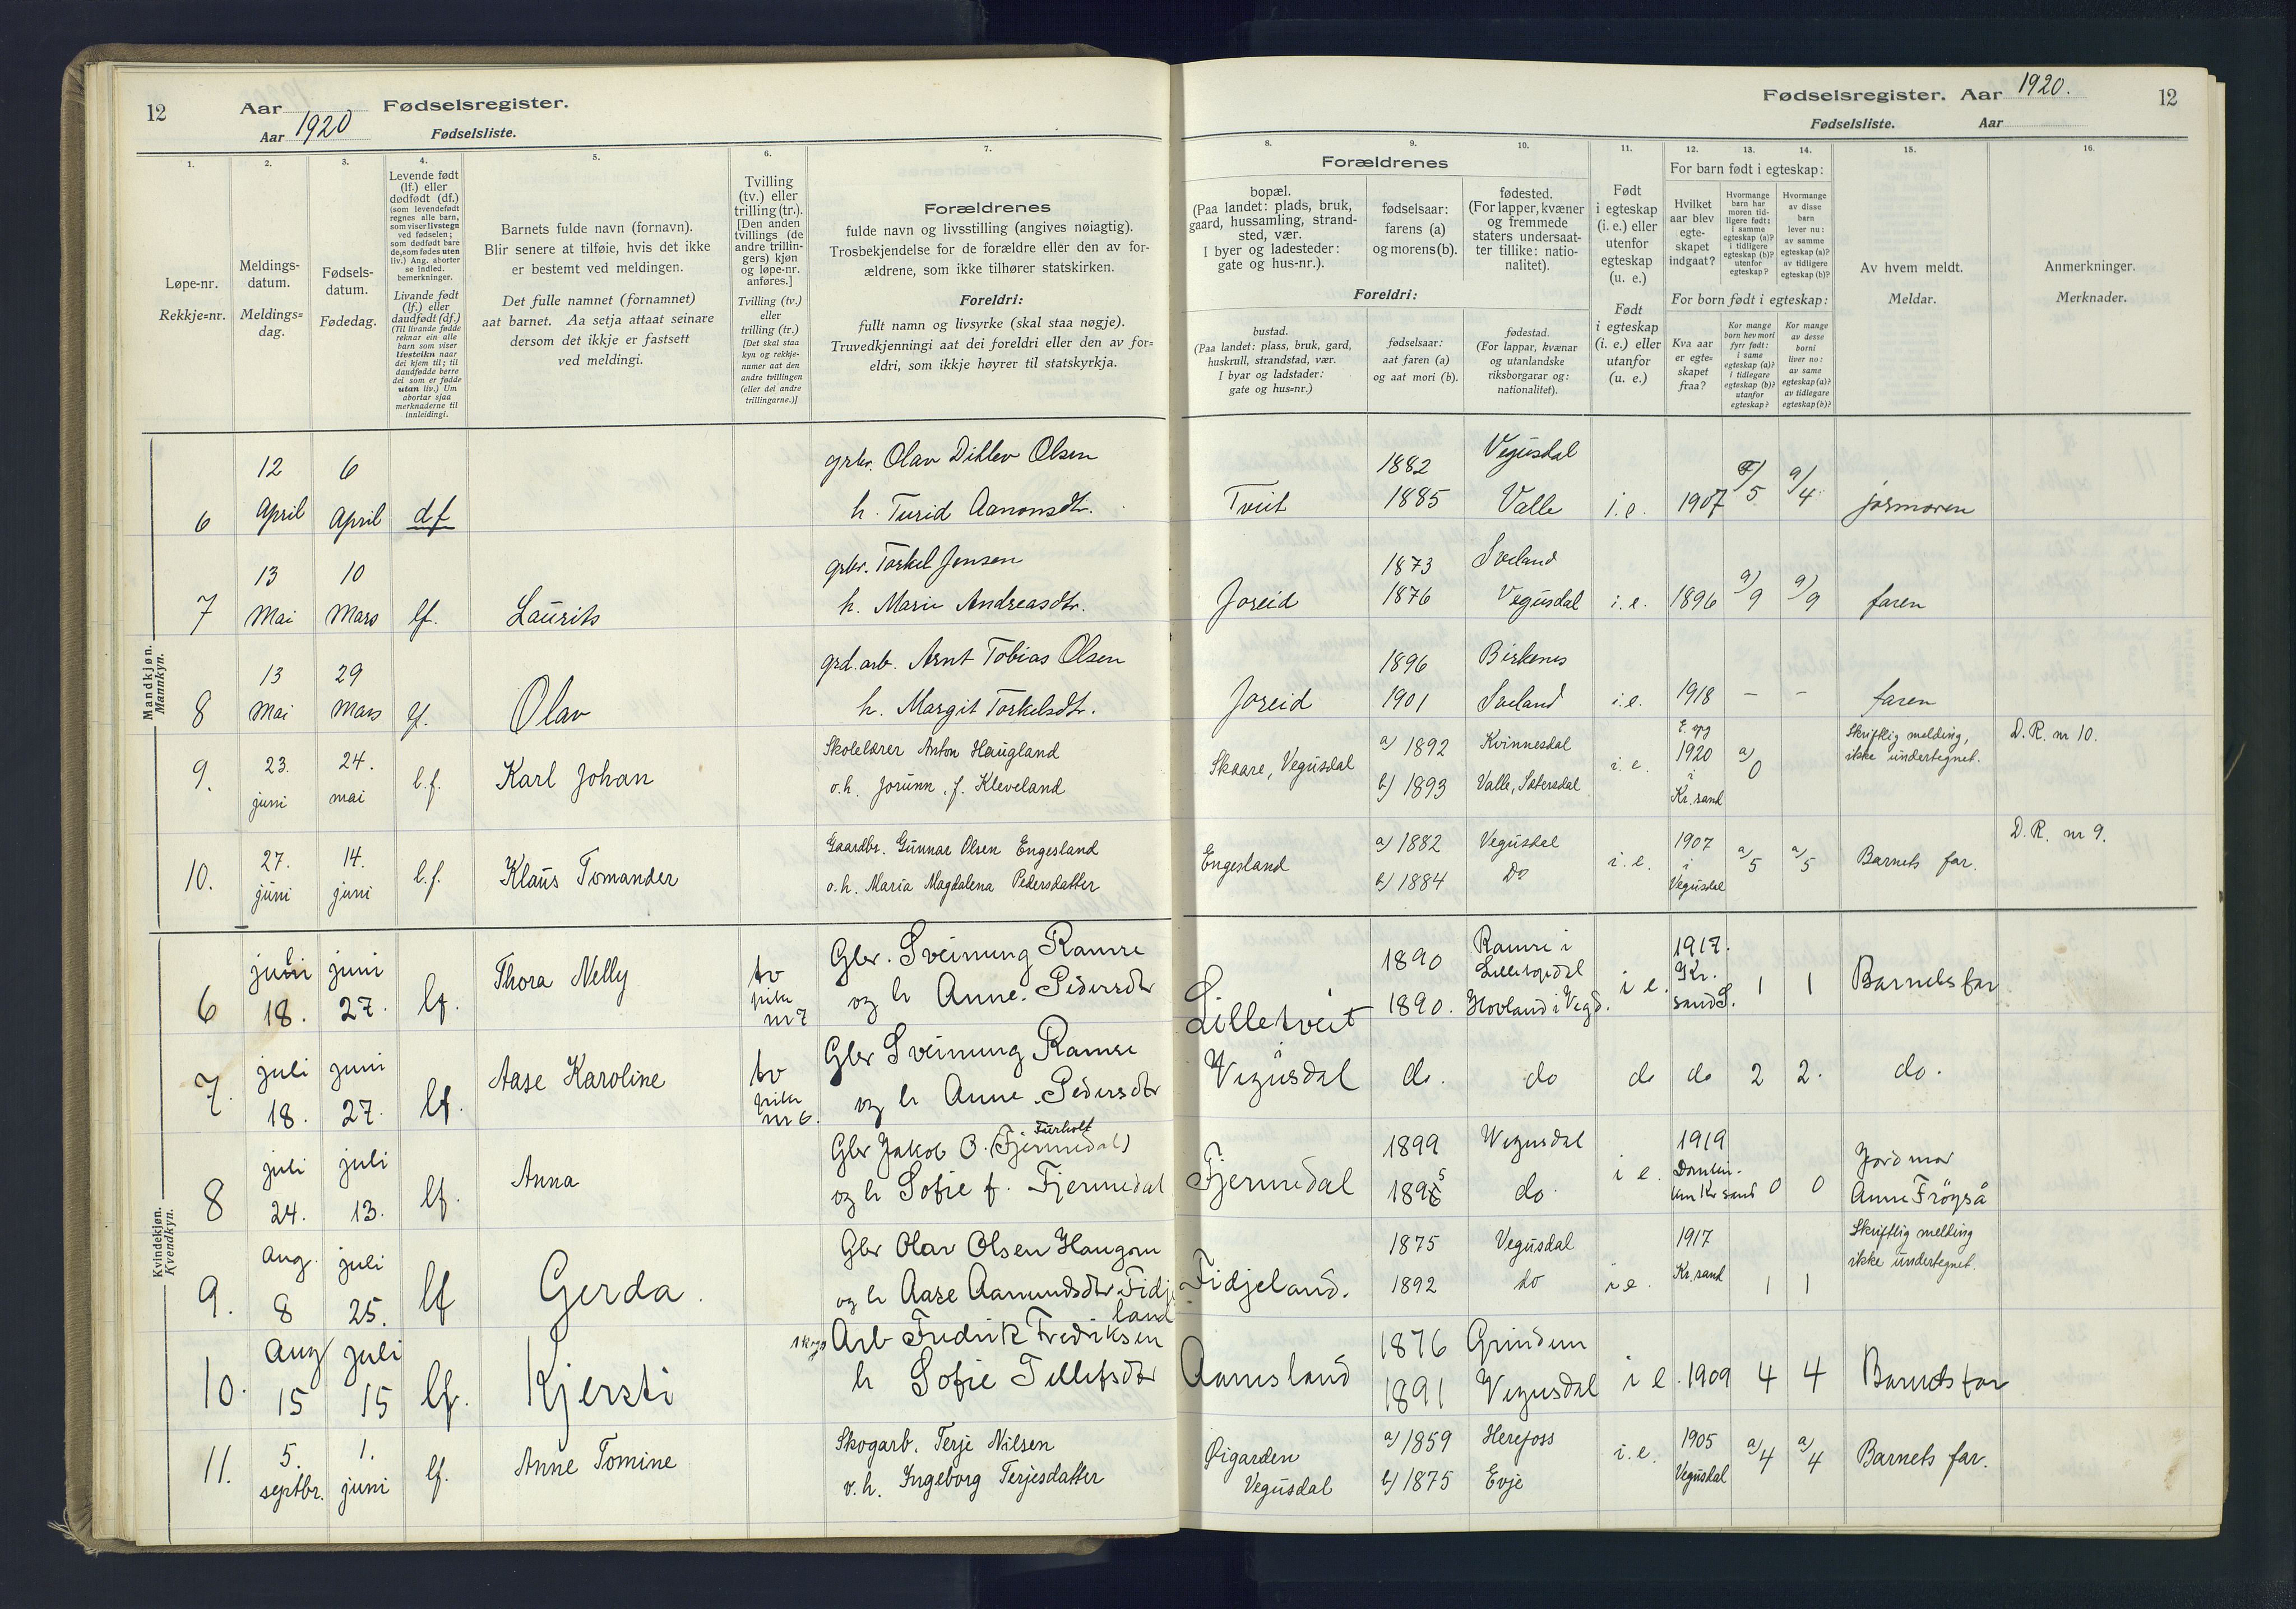 12
Aar
Fødselsregister.
Aar 1920
Fødselsliste.
Fødselsregister. Aar 1920.
12
Fødselsliste.
Aar
1.
Løpe-nr.
Rekkje=nr.
2.
Meldings-
datum.
Meldings=
dag.
3.
Fødsels-
datum.
Fødedag.
4.
Levende født
(lf.) eller
dødfødt (df.)
(som levendefødt
regnes alle barn,
som viser livstegn
ved fødselen;
som dødfødt bare
de, som fødes uten
liv.) Ang. aborter
se indled.
bemerkninger.
Livande født
(lf.) eller
daudfødt (df.)
(Til livande fødde
reknar ein alle
barn som viser
livsteikn naar
dei kjem til; til
daudfødde berre
dei som er fødde
utan liv.) Um
abortar sjaa
merknaderne til
innleidingi.
5.
Barnets fulde navn (fornavn).
Blir senere at tilføie, hvis det ikke
er bestemt ved meldingen.
Det fulle namnet (fornamnet)
aat barnet. Aa setja attaat seinare
dersom det ikkje er fastsett
ved meldingi.
6.
Tvilling
(tv.) eller
trilling (tr.).
[Den anden
tvillings (de
andre trillin-
gers) kjøn
og løpe-nr.
anføres.]
Tvilling (tv.)
eller
trilling (tr.)
[Det skal staa
kyn og rekkje-
numer aat den
andre tvillingen
(eller dei andre
trillingarne.)]
7.
Forældrenes
fulde navn og livsstilling (angives nøiagtig).
Trosbekjendelse for de forældre eller den av for-
ældrene, som ikke tilhører statskirken.
Foreldri:
fullt namn og livsyrke (skal staa nøgje).
Truvedkjenningi aat dei foreldri eller den av for=
eldri, som ikkje høyrer til statskyrkja.
8.
9.
10.
Forældrenes
bopæl.
(Paa landet: plads, bruk,
gaard, hussamling, strand-
sted, vær.
I byer og ladesteder:
gate og hus-nr.).
fødselsaar:
farens (a)
og morens (b).
fødested.
(For lapper, kvæner
og fremmede
staters undersaat-
ter tillike: natio-
nalitet).
Foreldri:
bustad.
(Paa landet: plass, bruk, gard,
huskrull, strandstad, vær.
I byar og ladstader:
gate og hus=nr.)
fødselsaar:
aat faren (a)
og aat mori (b).
fødestad.
(For lappar, kvænar
og utanlandske
riksborgarar og:
nationalitet).
11.
Født
i egteskap
(i. e.) eller
utenfor
egteskap
(u. e.)
Født
i egteskap
(i. e.) eller
utanfor
(u. e.)
12.
13.
14.
For barn født i egteskap:
Hvilket
aar blev
egte-
skapet
indgaat?
Hvormange
barn har
moren tid-
ligere født:
i samme
egteskap (a)?
i tidligere
egteskap (b)?
utenfor
egteskap?
Hvormange
av disse
barn
lever nu:
av samme
egteskap (a)?
av tidligere
egteskap (b)?
For born født i egteskap:
Kva aar
er egte=
skapet
fraa?
Kor mange
born hev mori
fyrr født:
i same
egteskap (a)?
i tidlegare
egteskap (b)?
utanfor
egteskap?
Kor mange
av desse
borni
liver no:
av same
egteskap (a)?
av tidlegare
egteskap (b)?
15.
Av hvem meldt.
Meldar.
16.
Anmerkninger.
Merknader.
Mandkjøn.
Mannkyn.
12 6 grbr. Olav Ditlev Olsen 1882 Vegusdal
6 April April df h. Turid Aanonsdtr. Tveit 1885 Valle i.e. 1907 a/5 a/4 jormoren
13 10 grbr. Torkel Jensen 1873 Sveland
7 Mai Mars lf. Laurits h. Marie Andreasdtr. Joreid 1876 Vegusdal i.e. 1896 a/9 a/9 faren
13 29 grd.arb. Arnt Tobias Olsen 1896 Birkenes
8 Mai Mars lf. Olav h. Margit Torkelsdtr. Joreid 1901 Sveland i.e. 1918 – – faren
9. 23. juni 24. mai l.f. Karl Johan Skolelærer Anton Haugland a) 1892 Kvinnesdal
o.h. Jorunn, f. Kleveland Skaare, Vegusdal b) 1893 Valle, Sætersdal i.e. 1920 i Kr.sand a/0 Skriftlig melding,
ikke undertegnet. D.R. nr 10.
10. 27. juni 14. juni l.f. Klaus Tomander Gaardbr. Gunnar Olsen Engesland a) 1882 Vegusdal
o.h. Maria Magdalena Pedersdatter Engesland b) 1884 Do i.e. 1907 i Vegusdal a/5 a/5 Barnets far. D.R. nr 9.
Kvindekjøn.
Kvendkyn.
6 juli 18. juni 27. lf. Thora Nelly tv pike nr 7 Gbr. Sveinung Ramse 1890 Ramse i
og h Anne Pedersdtr Lilletveit 1890. Hovland i Vegd. i e. 1917. Kr.sand S. 1 1 Barnets far
7. juli 18. juni 27. lf. Aase Karoline tv pike nr 6. Gbr Sveinung Ramse
og h Anne Pedersdtr i Vegusdal do. do do do 2 2. do.
8 juli 24. juli 13. lf. Anna Gbr Jakob O. (Fjermedal) Turholt 1899 Vegusdal
og h Sofie f. Fjermedal Fjermedal 1895 do. i e. 1919 0 0 Jordmor
Anne Frøyså
9. aug. 8 juli 25. lf Gerda. Gbr Olav Olsen Haugom 1875 Vegusdal
og h Aase Aamundsdtr Fidjeland Fidjeland. 1892 do i e. 1917 Kr.sand 1 1 Skriftlig melding
ikke undertegnet.
10. Aug 15 juli 15 lf. Kjersti skogs Arb Fredrik Fredriksen 1876 Grindum
h Sofie Tellefsdtr Aamesland 1891 Vegusdal i e. 1909 4 4 Barnets far
11. 5. septbr. 1. juni lf. Anne Tomine Skogarb. Terje Nilsen a) 1859 Herefoss
o.h. Ingeborg Terjesdatter Øigarden Vegusdal b) 1875 Evje i.e. 1905 Vegusdal a/4 a/4 Barnets far.